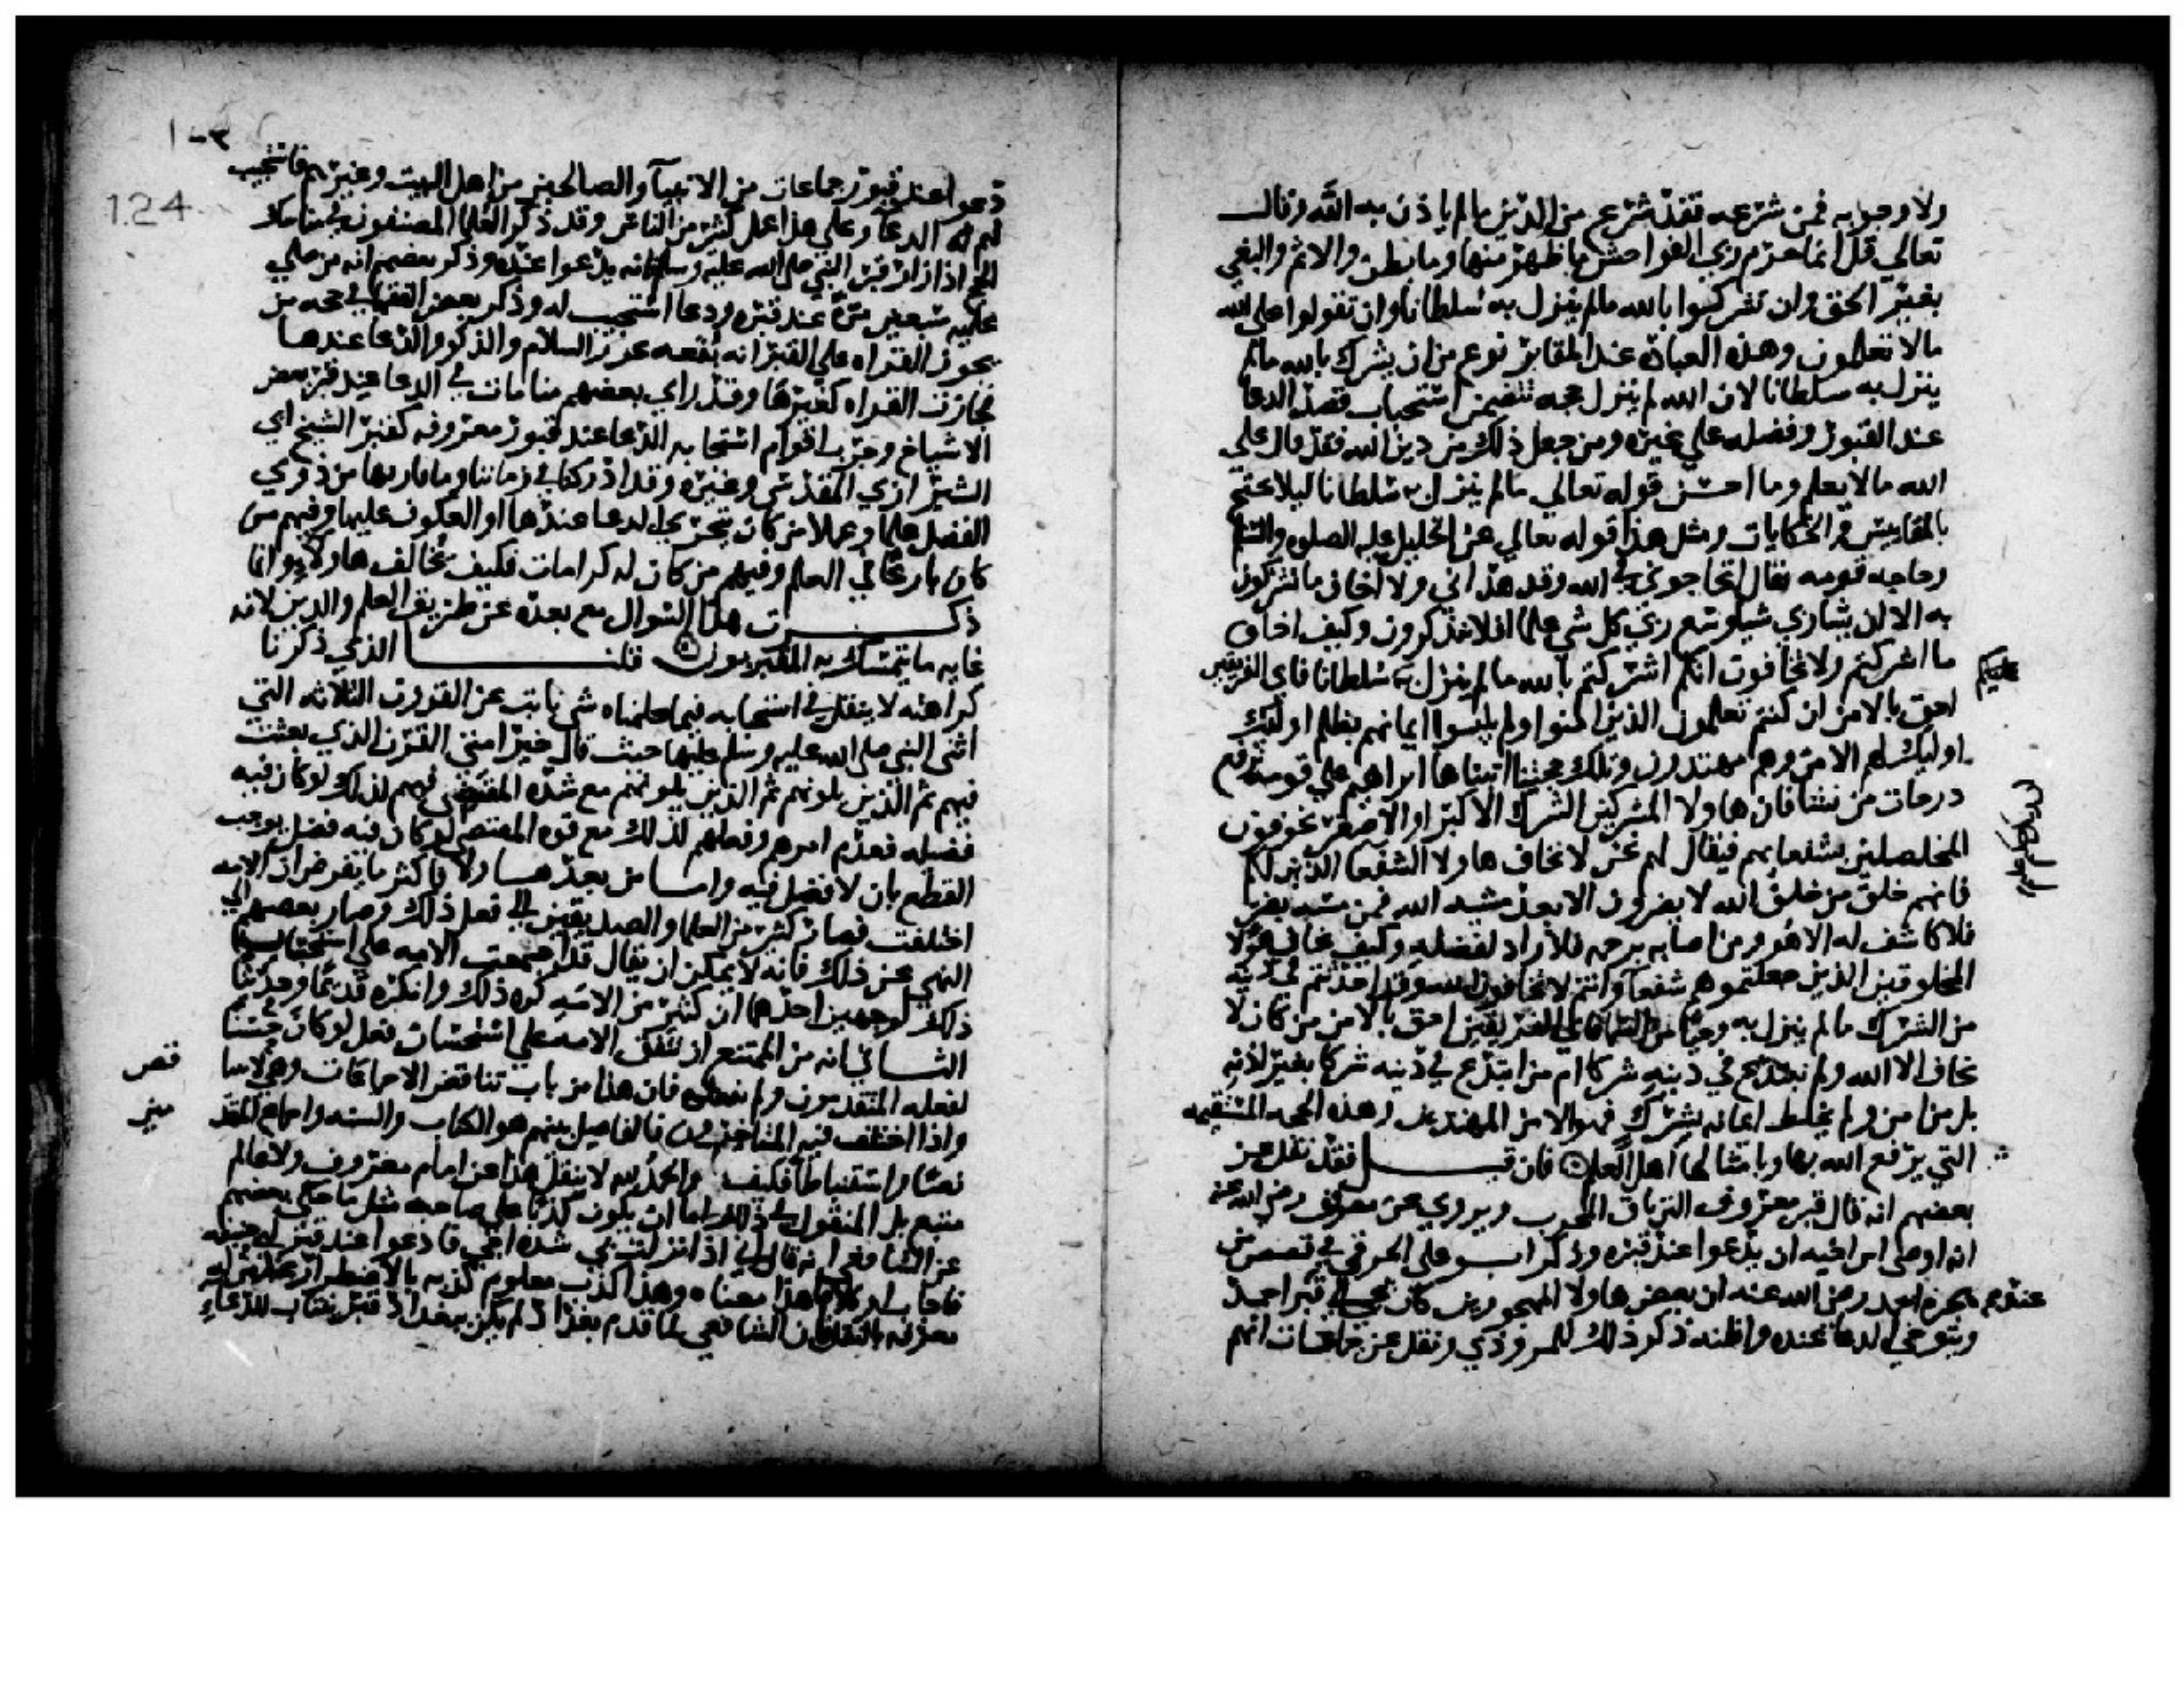 ولا وجوبه فمن شرعه فقد شرع من الدين ما لم ياذن به الله وقال
تعالي قل انما حرم ربي الفواحش ما ظهر منها وما بطن والاثم والبغي
بغير الحق وان تشركوا بالله ما لم ينزل به سلطانا وان تقولوا على الله
مالا تعلمون وهذه العبادة عند المقابر نوع من ان يشرك بالله مالم
ينزل به سلطانا لان الله لم ينزل حجه تتضمن استحباب قصد الدعا
عند القبور وفضله علي غيره ومن جعل ذلك من دين الله فقد قال علي
الله مالا يعلم وما احسن قوله تعالي مالم ينزل به سلطانا ليلا يحتج
بالمقاييس والحكايات ومثل هذا قوله تعالي عن الخليل عليه الصلوه والسلام
وحاجه قومه فقال اتحاجوني في الله وقد هداني ولا اخاف ما تشركون
به الا ان يشا ربي شيا وسع ربي كل شي علما افلا تتذكرون وكيف اخاف
ما اشركتم ولا تخافون انكم اشركتم بالله ما لم ينزل به سلطانا فاي الفريقين
عليكم
احق بالامن ان كنتم تعلمون الذين امنوا ولم يلبسوا ايمانهم بظلم اوليك
اوليك لهم الامن وهم مهتدون وتلك حجتنا اتيناها ابراهيم علي قومه نرفع
درجات من نشا فان هاولا المشركين الشرك الاكبر او الاصغر يخوفون
المخلصين بشفعايهم فيقال لهم نحن لا نخاف هاولا الشفعا الذين لكم
فانهم خلق من خلق الله لا يضرون الا بعد مشيه الله فمن مسه بضر
فلا كاشف له الا هو ومن اصابه برحمه فلا راد لفضله وكيف نخاف هولا
المخلوقين الذين جعلتموهم شفعا وانتم لا تخافون الله وقد احدثتم في دينه
من الشرك ما لم ينزل به وحيا من السما فاي الفريقين احق بالامن من كان لا
يخاف الا الله ولم يبتدع في دينه شركا ام من ابتدع في دينه شركا بغير اذنه
بل من امن ولم يخلط ايمانه بشرك فهو الامن المهتدين وهذه الحجه المستقيمه
التي يرفع الله بها وبامثالها اهل العلم فان قيل فقد نقل عن
بعضهم انه قال قبر معروف الترياق المجرب ويروي عن معروف رضي الله عنه
انه اوصى ابن اخيه ان يدعوا عند قبره وذكر ابو علي الخرقي في قصص من
هجره احمد رضي الله عنه ان بعض هاولا المهجورين كان يجي الي قبر احمد
عندهم
ويتوخي الدعا عنده واظنه ذكر ذلك للمروذي ونقل عن جماعات انهم
124
دعوا عند قبور جماعات من الانبيا والصالحين من اهل البيت وغيرهم فاستجيب
لهم الدعا وعلي هذا عمل كثير من الناس وقد ذكر العلما المصنفون في مناسك
الحج اذا زار قبر النبي صلى الله عليه وسلم فانه يدعوا عنده وذكر بعضهم انه من صلي
عليه سبعين مره عند قبره ودعا استجيب له وذكر بعض الفقها في حجه من
يجوز القراه علي القبر انه بقعه يجوز السلام والذكر والدعا عندها
فجازت القراه كغيرها وقد راي بعضهم منامات في الدعا عند قبر بعض
الاشياخ وجرب اقوام استجابه الدعا عند قبور معروفه كقبر الشيخ ابي
الشيرازي المقدسي وغيره وقد ادركنا في زماننا وما قاربها من ذوي
الفضل علما وعملا من كان يتحرى الدعا عندها او العكوف عليها وفيهم من
كان بارعا في العلم وفيهم من كان له كرامات فكيف نخالف هاولا وانما
ذكرت هذا السوال مع بعده عن طريق العلم والدين لانه
غايه ما يتمسك به المقبريون قلنا الذي ذكرنا
كراهته لا ينقل في استحبابه فيما علمناه شي ثابت عن القرون الثلاثه التي
اثنى النبي صلى الله عليه وسلم عليها حيث قال خير امتي القرن الذي بعثت
فيهم ثم الذين يلونهم ثم الذين يلونهم مع شده المقتضي فيهم لذلك لو كان فيه
فضيله فعدم امرهم وفعلهم لذلك مع قوه المقتضي لو كان فيه فضل يوجب
القطع بان لا فضل فيه واما من بعد هاولا فاكثر ما يفرض ان الامه
اختلفت فصار كثير من العلما والصديقين الي فعل ذلك وصار بعضهم الي
النهي عن ذلك فانه لا يمكن ان يقال قد اجتمعت الامه علي استحباب
ذلك لوجهين احدهما ان كثير من الامه كره ذلك وانكره قديما وحديثا
الثاني انه من الممتنع ان تتفق الامه علي استحسان فعل لو كان حسنا
لفعله المتقدمون ولم يفعلوه فان هذا من باب تناقض الاجماعات وهي لا
واذا اختلف فيه المتاخرون فالفاصل بينهم هو الكتاب والسنه واجماع المتقد
مين
نصا واستنباطا فكيف والحمد لله لا ينقل هذا عن امام معروف ولا عالم
متبع بل المنقول في ذلك اما ان يكون كذبا علي صاحبه مثل ما حكى بعضهم
عن الشافعي انه قال اني اذا نزلت بي شده اجي فادعوا عند قبر ابي حنيفه
فاجاب او كلاما هذا معناه وهذا كذب معلوم كذبه بالاضطرار عند من له
معرفه بالنقل فان الشافعي لما قدم بغداد لم يكن ببغداد قبر ينتاب للدعا